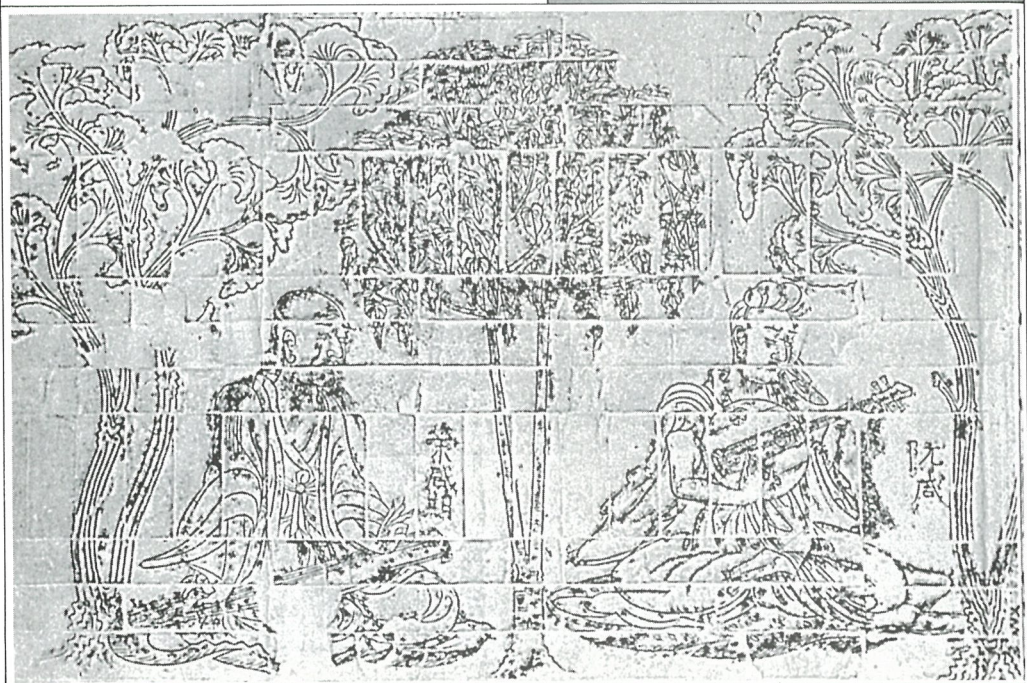 榮啓期
阮咸